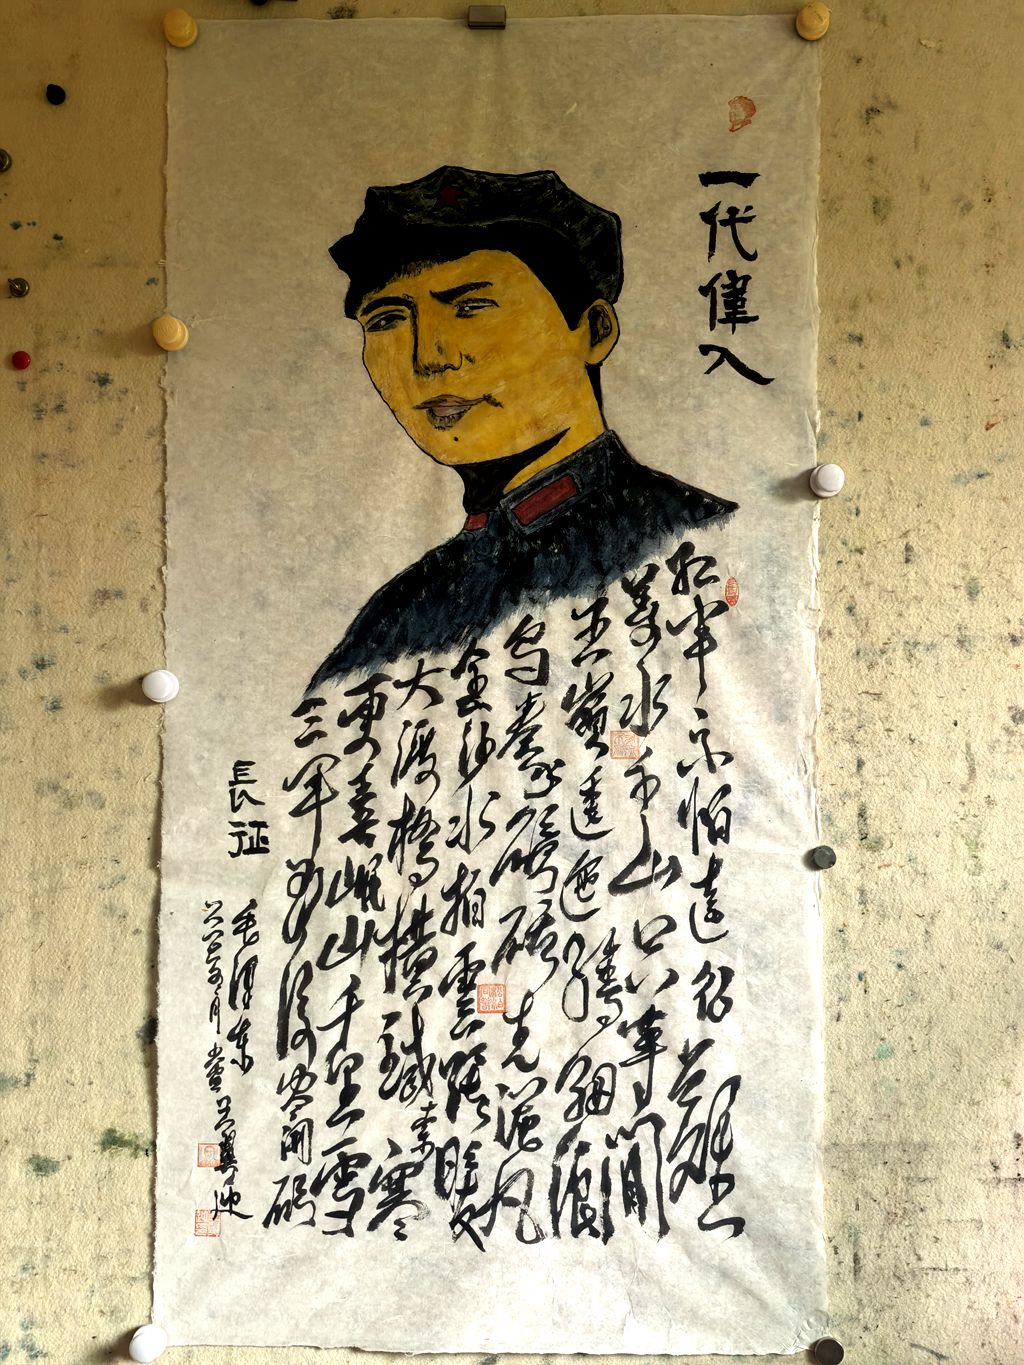 一代偉人
紅軍不怕遠征難
萬水千山只等閒
五嶺逶迤騰細浪
烏蒙磅礴走泥丸
金沙水拍雲崖暖
大渡橋橫鐵索寒
更喜岷山千里雪
三軍過後盡開顏
長征
毛澤東